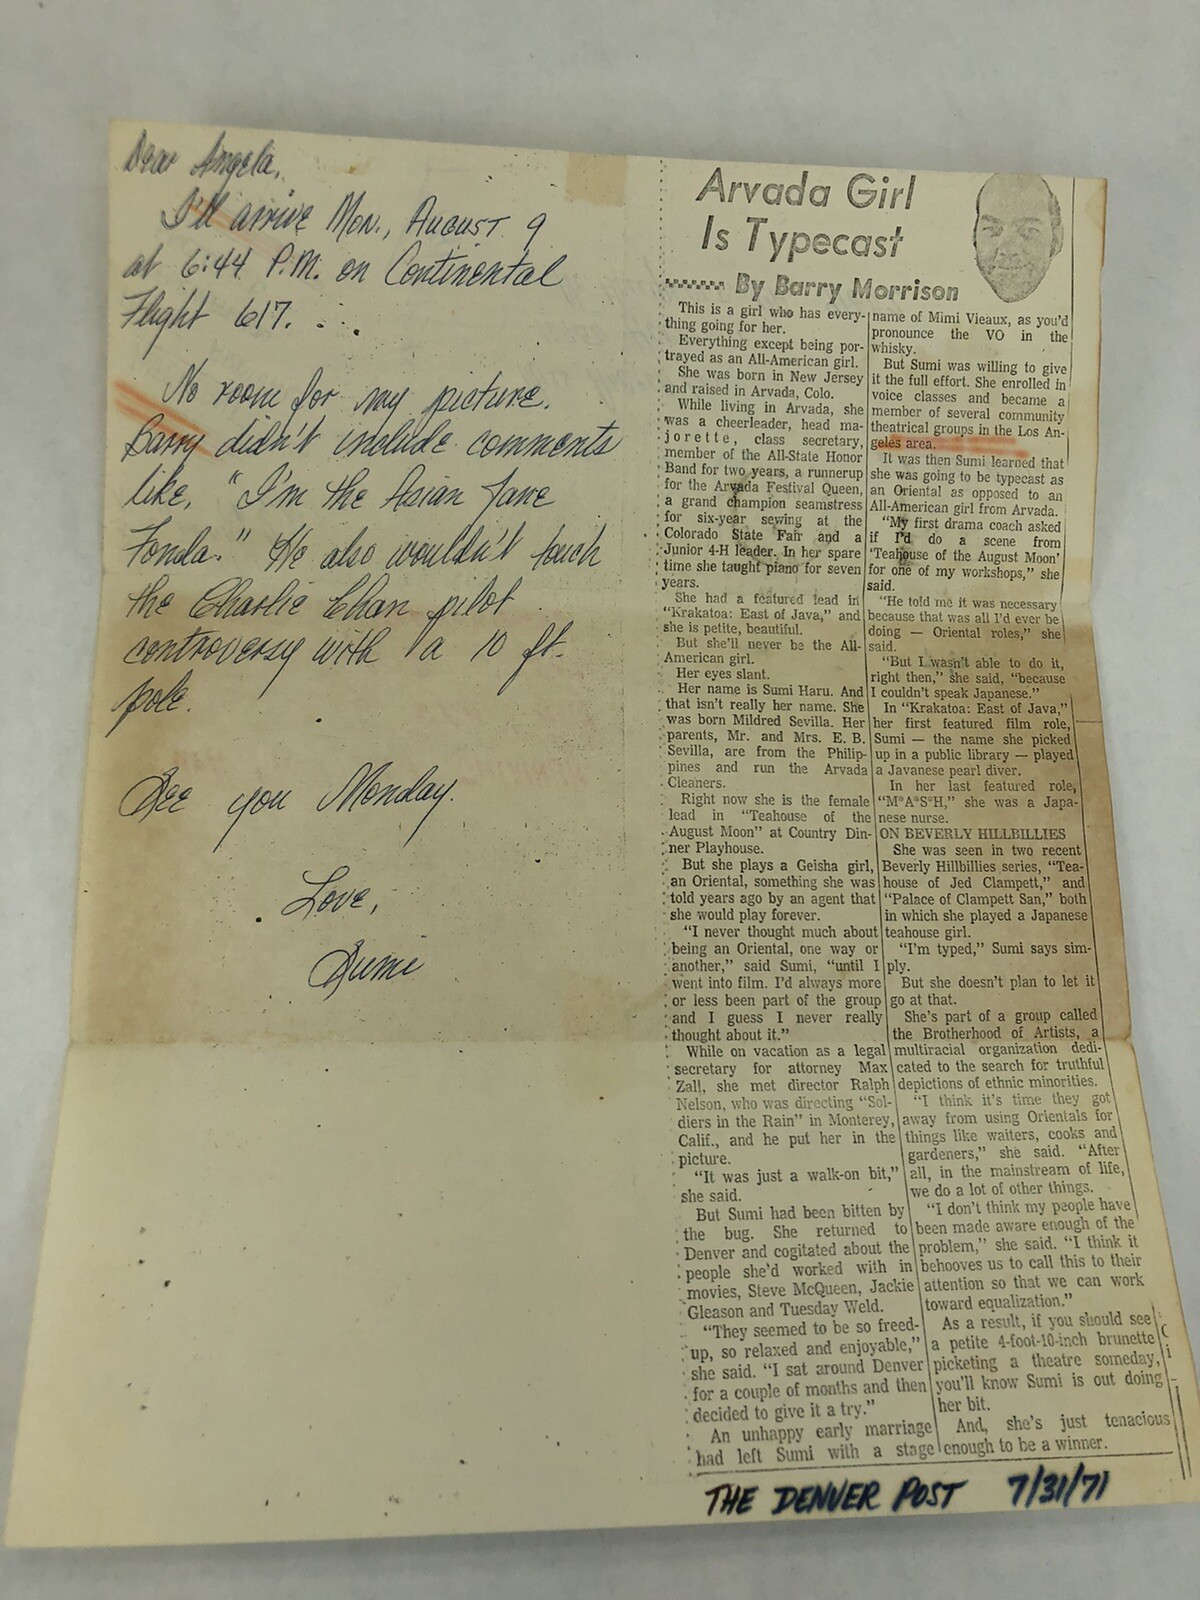 Dear Angela,
I'll arrive Mon., August 9
at 6:44 P.M. on Continental
Flight 617. . . .
No room for my picture.
Barry didn't include comments
like, "I'm the Asian Jane
Fonda." He also wouldn't touch
the Charlie Chan pilot
controversy with a 10 ft.
pole.
See you Monday.
Love,
Sumi
Arvada Girl
Is Typecast
By Barry Morrison
This is a girl who has every-
thing going for her.
Everything except being por-
trayed as an All-American girl.
She was born in New Jersey
and raised in Arvada, Colo.
While living in Arvada, she
was a cheerleader, head ma-
jorette, class secretary,
member of the All-State Honor
Band for two years, a runnerup
for the Arvada Festival Queen,
a grand champion seamstress
for six-year sewing at the
Colorado State Fair and a
Junior 4-H leader. In her spare
time she taught piano for seven
years.
She had a featured lead in
"Krakatoa: East of Java," and
she is petite, beautiful.
But she'll never be the All-
American girl.
Her eyes slant.
Her name is Sumi Haru. And
that isn't really her name. She
was born Mildred Sevilla. Her
parents, Mr. and Mrs. E. B.
Sevilla, are from the Philip-
pines and run the Arvada
Cleaners.
Right now she is the female
lead in "Teahouse of the
August Moon" at Country Din-
ner Playhouse.
But she plays a Geisha girl,
an Oriental, something she was
told years ago by an agent that
she would play forever.
"I never thought much about
being an Oriental, one way or
another," said Sumi, "until I
went into film. I'd always more
or less been part of the group
and I guess I never really
thought about it."
While on vacation as a legal
secretary for attorney Max
Zall, she met director Ralph
Nelson, who was directing "Sol-
diers in the Rain" in Monterey,
Calif., and he put her in the
picture.
"It was just a walk-on bit,"
she said.
But Sumi had been bitten by
the bug. She returned to
Denver and cogitated about the
people she'd worked with in
movies, Steve McQueen, Jackie
Gleason and Tuesday Weld.
"They seemed to be so freed-
up, so relaxed and enjoyable,"
she said. "I sat around Denver
for a couple of months and then
decided to give it a try."
An unhappy early marriage
had left Sumi with a stage
name of Mimi Vieaux, as you'd
pronounce the VO in the
whisky.
But Sumi was willing to give
it the full effort. She enrolled in
voice classes and became a
member of several community
theatrical groups in the Los An-
geles area.
It was then Sumi learned that
she was going to be typecast as
an Oriental as opposed to an
All-American girl from Arvada.
"My first drama coach asked
if I'd do a scene from
'Teahouse of the August Moon'
for one of my workshops," she
said.
"He told me it was necessary
because that was all I'd ever be
doing — Oriental roles," she
said.
"But I wasn't able to do it,
right then," she said, "because
I couldn't speak Japanese."
In "Krakatoa: East of Java,"
her first featured film role,
Sumi — the name she picked
up in a public library — played
a Javanese pearl diver.
In her last featured role,
"M*A*S*H," she was a Japa-
nese nurse.
ON BEVERLY HILLBILLIES
She was seen in two recent
Beverly Hillbillies series, "Tea-
house of Jed Clampett," and
"Palace of Clampett San," both
in which she played a Japanese
teahouse girl.
"I'm typed," Sumi says sim-
ply.
But she doesn't plan to let it
go at that.
She's part of a group called
the Brotherhood of Artists, a
multiracial organization dedi-
cated to the search for truthful
depictions of ethnic minorities.
"I think it's time they got
away from using Orientals for
things like waiters, cooks and
gardeners," she said. "After
all, in the mainstream of life,
we do a lot of other things.
"I don't think my people have
been made aware enough of the
problem," she said. "I think it
behooves us to call this to their
attention so that we can work
toward equalization."
As a result, if you should see
a petite 4-foot-10-inch brunette
picketing a theatre someday,
you'll know Sumi is out doing
her bit.
And, she's just tenacious
enough to be a winner.
THE DENVER POST 7/31/71